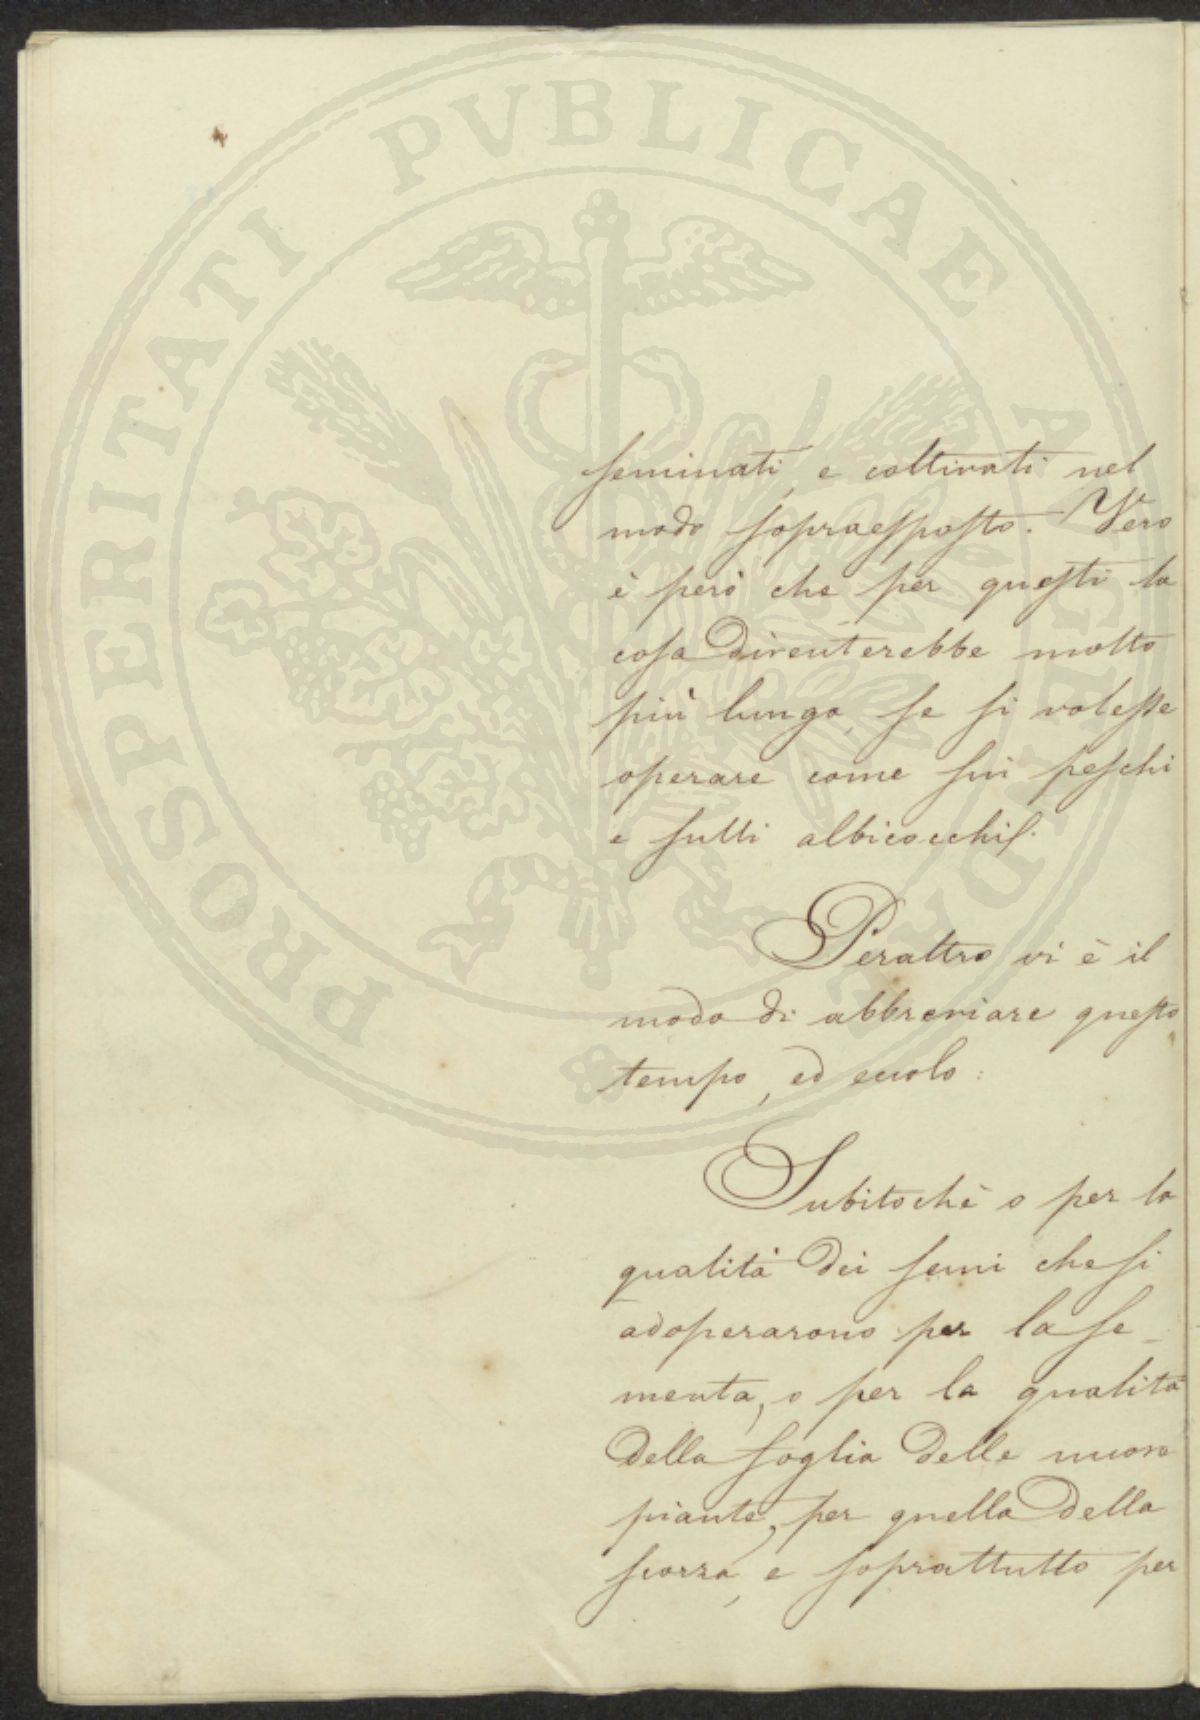 PROSPERITATI PUBLICAE AUGENDAE
seminati, e coltivati nel
modo sopraesposto. Vero
è però che per questi la
cosa diventerebbe molto
più lunga, se si volesse
operare come sui peschi
e sulli albicocchi.
Peraltro vi è il
modo di abbreviare questo
tempo, ed eccolo:
Subitochè o per la
qualità dei semi che si
adoperarono per la se-
menta, o per la qualità
della foglia delle nuove
piante, per quella della
scorza, e soprattutto per